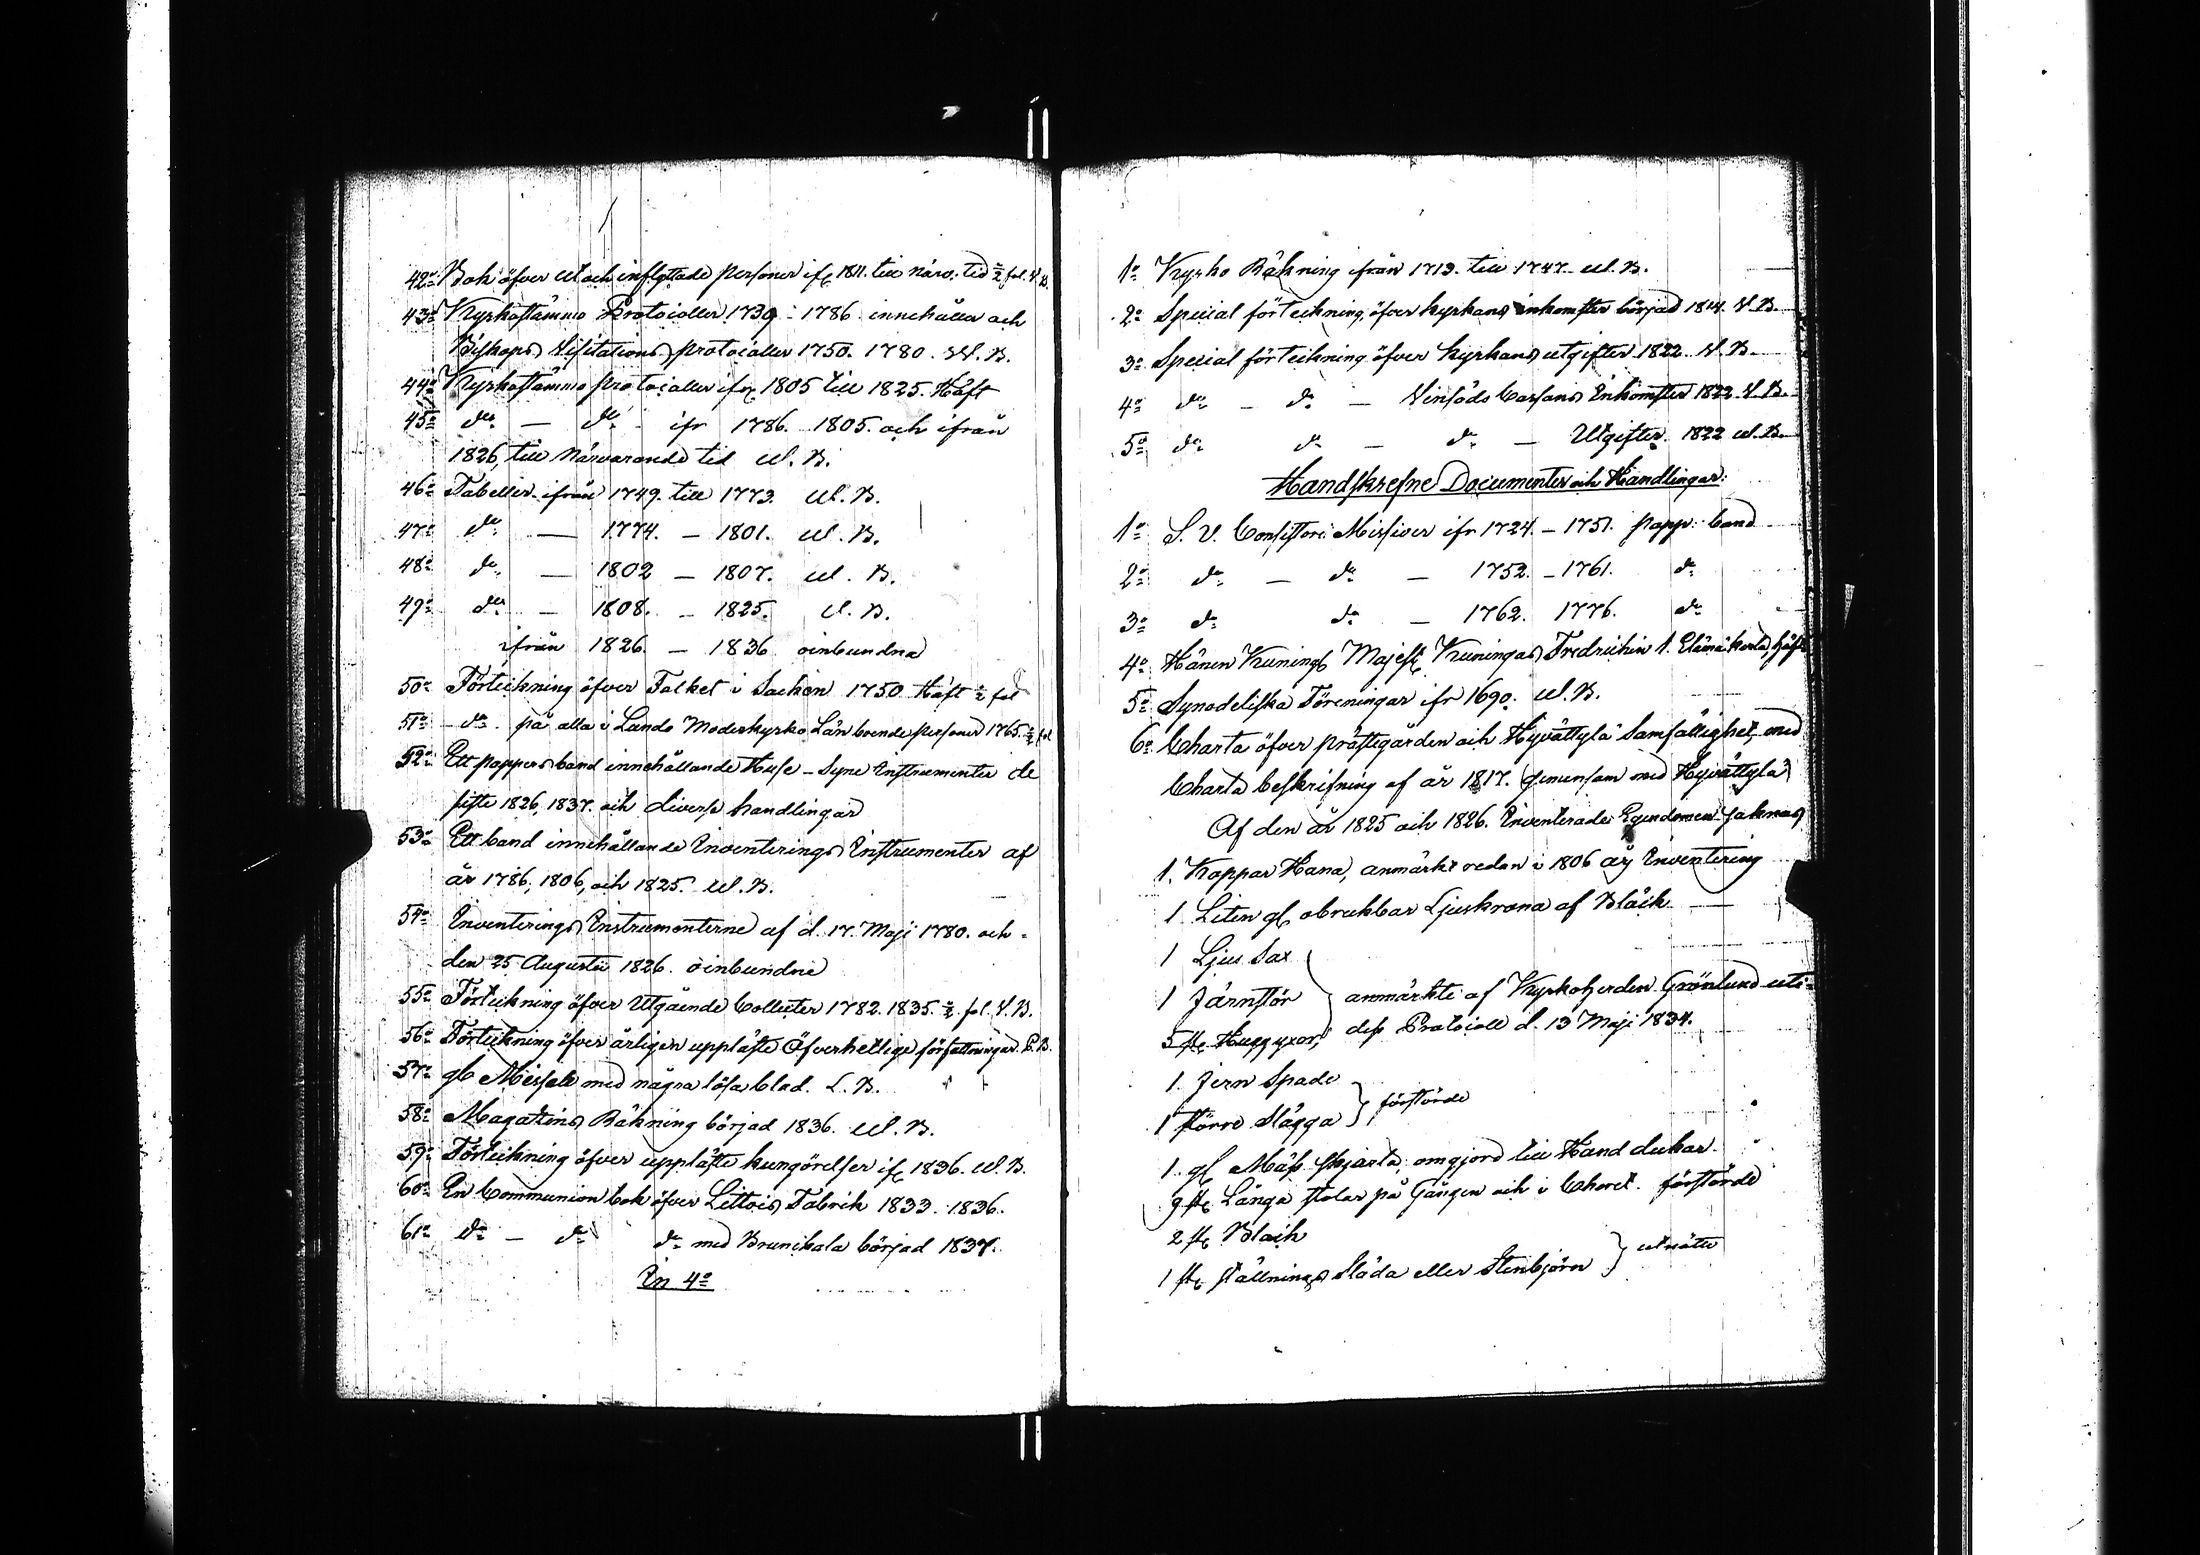 42o Bok öfver ut och inflyttade personer ifr 1811. till närv. tid ½ fol. V. B.
43o Kyrkostämmo Protocoller 1739 - 1786 innehåller och
Biskops Visitations protocoller 1750. 1780. W. B.
44o Kyrkostämmo protocoller ifr 1805 till 1825. Häft
45o do — do - ifr 1786. 1805. och ifrån
1826, till närvarande tid W. B.
46o Tabeller ifrån 1749. till 1773. W. B.
47o do — 1774. — 1801. W. B.
48o do — 1802 — 1807. W. B.
49o do — 1808. — 1825. W. B.
ifrån 1826. — 1836 oinbundna
50o Förteckning öfver Folket i Socken 1750 Häft ½ fol
51o do på alla i Lundo Moderkyrko Län boende personer 1765. ½ fol
52o Ett pappersband innehållande Huse-Syne Instrumenter de
siste 1826, 1837. och diverse handlingar
53o Ett band innehållande Inventerings Instrumenter af
år 1786, 1806, och 1825. W. B.
54o Inventerings Instrumenterne af d. 17. Maji 1780. och
den 25 Augustii 1826. oinbundne
55o Förteckning öfver Utgående Collecter 1782. 1835. ½ fol. V. B.
56o Förteckning öfver årligen uppläste Öfverhetlige författningar P. B.
57o gl Missale med några lösa blad. L. B.
58o Magatins Räkning började 1836. W. B.
59o Förteckning öfver uppläste kungörelser ifr 1836. W. B.
60o En Communion bok öfver Littois Fabrik 1833. 1836.
61o do — do do med Brunikala började 1837.
In 4o
1o Kyrko Räkning ifrån 1713. till 1747. W. B.
2o Special förteckning öfver kyrkans inkomster började 1814. V. B.
3o Special förteckning öfver kyrkans utgifter 1822. V. B.
4o do — do — Vinsåds Cassans Inkomster 1822. V. B.
5o do do — do — Utgifter 1822 W. B.
Handskrefne Documenter och Handlingar.
1o S. V. Consistorii Missiver ifr 1724. — 1751. papp. band
2o do — do — 1752. — 1761. do
3o do do — 1762. 1776. do
4o Hänen Kuningl Majest Kuningas Fredrichin 1. Elämäkerta, häft
5o Synodeliska Föreningar ifr 1690. W. B.
6o Charta öfver prästegården och Hyvättylä Samfällighet, med
Charta beskrifning af år 1817. (gemensam med Hyvättylä)
Af den år 1825 och 1826. Inventerade Egendomen saknas
1. Koppar Hana, anmärkt redan i 1806 års Inventering
1 Liten gl obrukbar Ljuskrona af Bläck
1 Ljus Sax
1 Järnstör anmärkte af Kyrkoherden Grönlund uti
5 st Huggyxor, dess Protocoll d. 13 Maji 1834.
1. Jern Spade
1 större Slägga } förstörde
1. gl Mäss skjorta, omgjord till Hand dukar.
9 st Långa stolar på Gången och i Choret. förstörde
2 st Bloch
1 st ställnings Släda eller Stenbjörn } utnötte